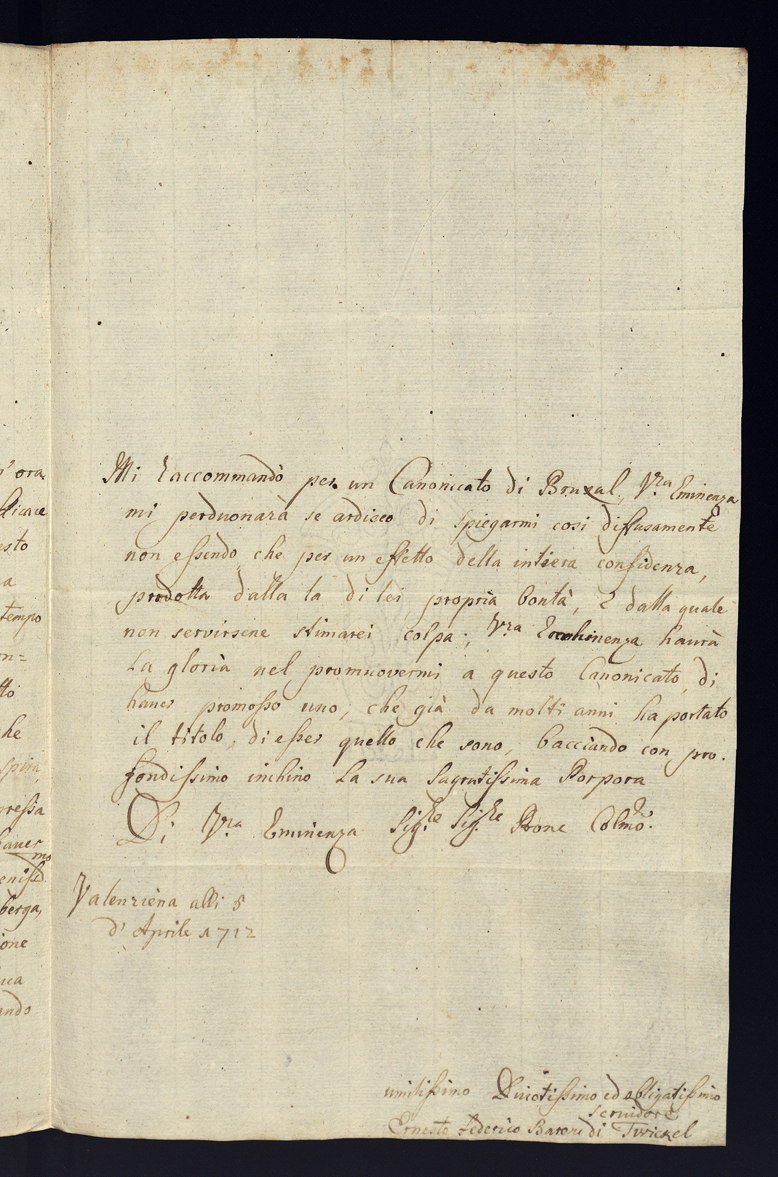 n' ora
dicace
esto
a
tempo
on=
tto
che
pressa
haver
mo
berga,
ione
uca
ando
Mi raccommandò per un Canonicato di Bruxal, Vra Eminenza
mi perduonarà se ardisco di spiegarmi cosi diffusamente
non essendo che per un effetto della intiera confidenza,
prodotta dalla la di lei propria bontà, e dalla quale
non servirsene stimarei colpa; Vra Eminenza haurà
la gloria nel promuovermi a questo Canonicato, di
haver promosso uno, che già da molti anni ha portato
il titolo, di esser quello che sono, bacciando con pro.
fondissimo inchino la sua Sagratissima Porpora
Di Vra Eminenza Sigre Sigre Prone Colmo.
Valenziena alli 5
d' Aprile 1712
umilissimo Divotissimo ed obligatissimo
servidore
Ernesto Federico Barone di Twickel